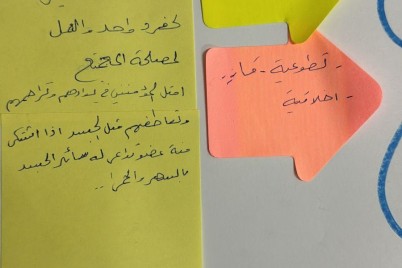 كفرد واحد والعمل
لمصلحة المجتمع
مثل المؤمنين في توادهم وتراحمهم
وتعاطفهم مثل الجسد اذا اشتكى
منه عضو تداعى له سائر الجسد
بالسهر والحمى ..
- تطوعية -
- اخلاقية